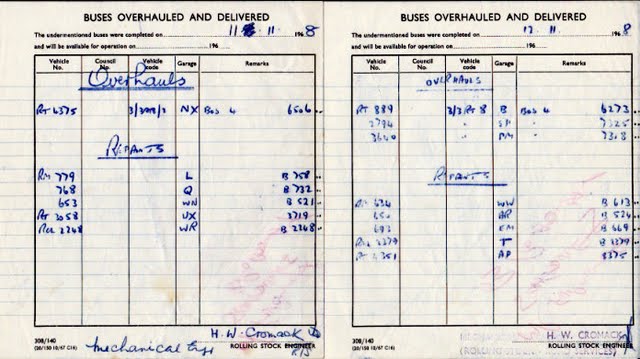 BUSES OVERHAULED AND DELIVERED
The undermentioned buses were completed on 11 11. 196 8
and will be available for operation on 196
Vehicle No. Council No. Vehicle code Garage Remarks
Overhauls
RT 4375 NX Bos 4 6506
Repaints
RM 779 L B 758
768 Q B 732
653 WN B 521
RT 3058 UX 3719
RCL 2248 WR B 2248
H. W. Cromack
308/140
mechanical Engr ROLLING STOCK ENGINEER
BUSES OVERHAULED AND DELIVERED
The undermentioned buses were completed on 12. 11. 196 8
and will be available for operation on 196
Vehicle No. Council No. Vehicle code Garage Remarks
OVERHAULS
RT 889 3/3 RT 8 B Bos 4 6273
2794 " 7325
3640 "
Repaints
634 WW B 613
B 524
693 B 669
2279 T B 2279
4351 AP 8375
308/140
H. W. CROMACK
ROLLING STOCK ENGINEER